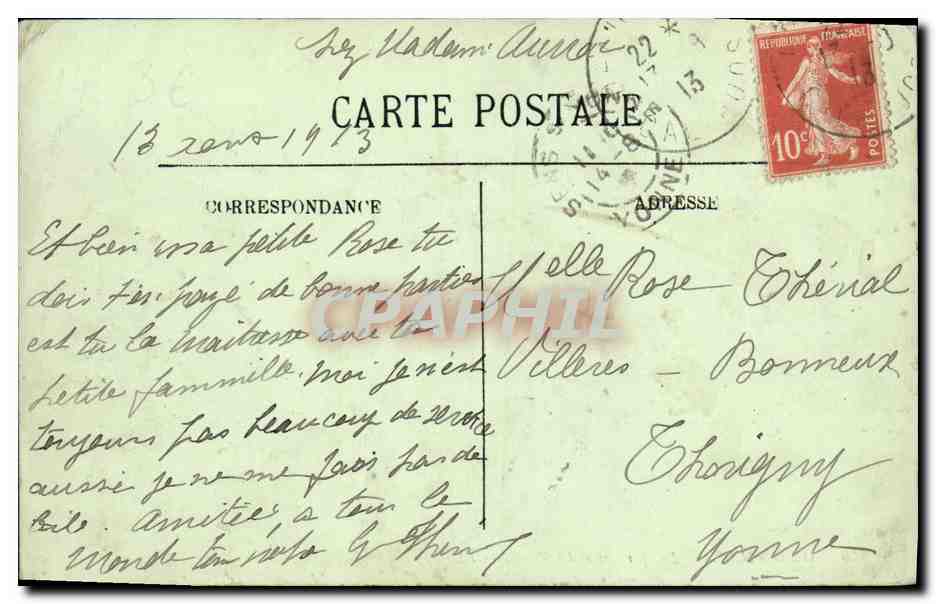 chez Madame
RÉPUBLIQUE FRANÇAISE
10c
POSTES
22
13
CARTE POSTALE
13 1913
SENS
11
14-8
YONNE
CORRESPONDANCE
ADRESSE
Et bien ma petite Rose tu
dois t'en payé de bonne parties
est tu la maitresse avec ta
petite fammille. moi je n'est
toujours pas beaucoup de service
aussi je ne me fais pas de
bile. Amitié a tous le
monde ton
CPAPHIL
Melle Rose Thérial
Villeres - Bonneux
Thorigny
Yonne